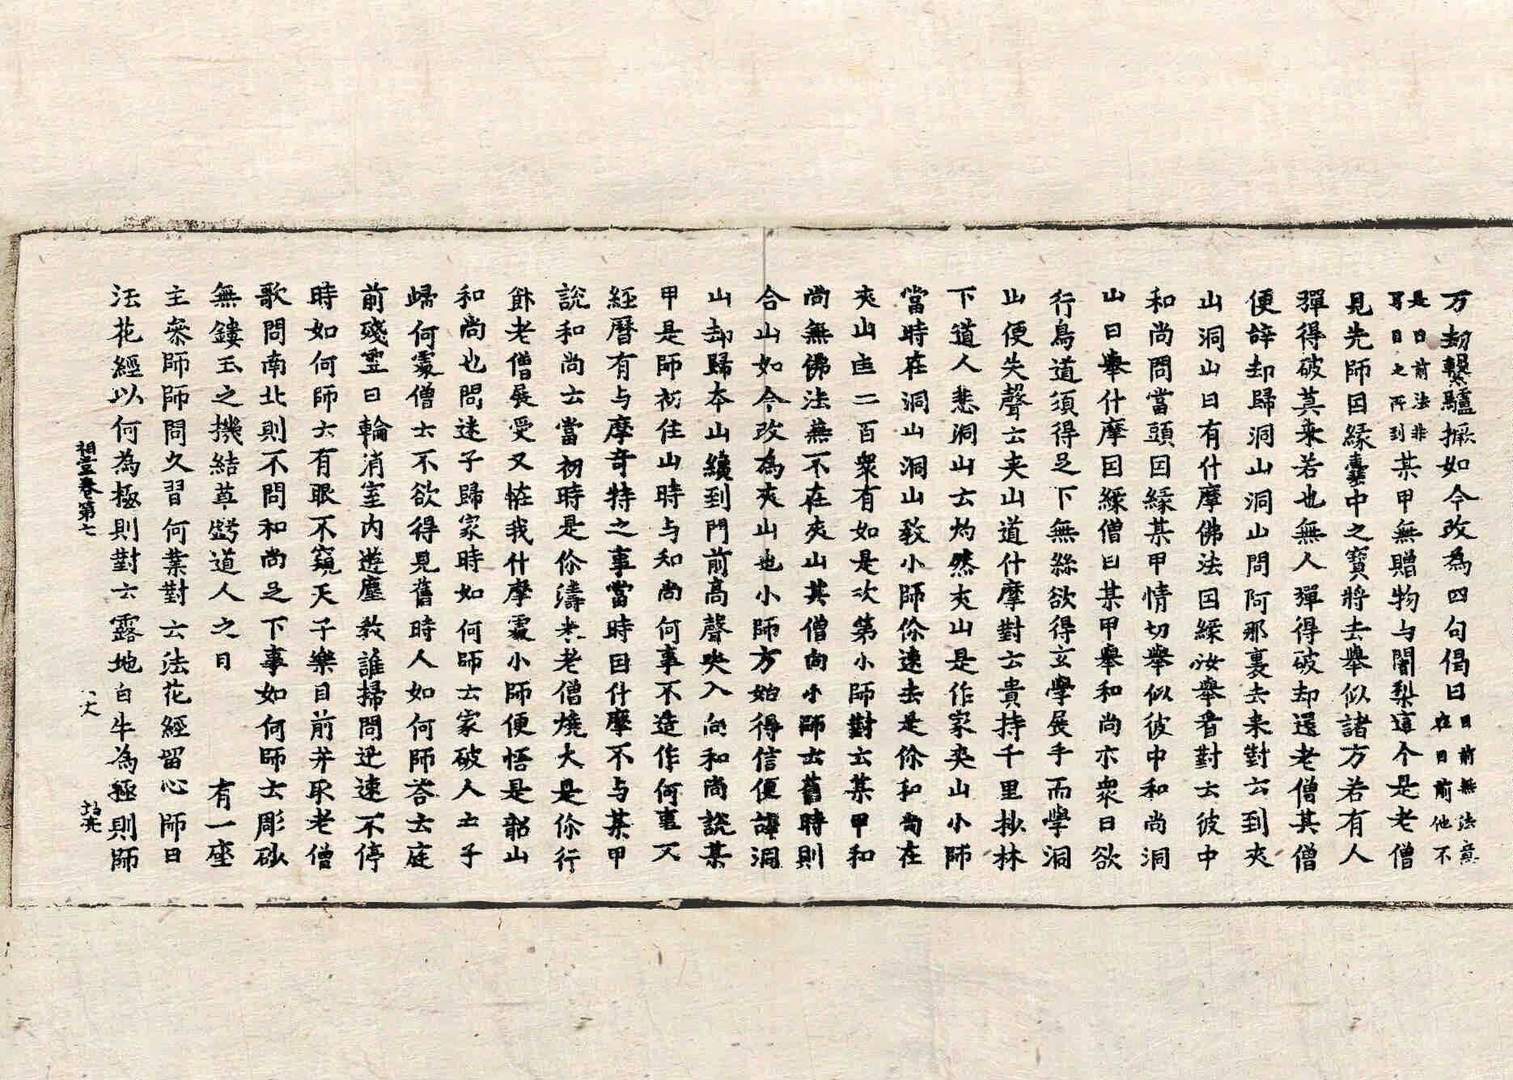 万劫繫驢橛如今改為四句偈曰目前無法意在目前他不
是目前法非耳目之所到某甲無贈物与闍梨這个是老僧
見先師因緣囊中之寶將去舉似諸方若有人
彈得破莫来若也無人彈得破却還老僧其僧
便辞却歸洞山洞山問阿那裏去来對云到夾
山洞山曰有什摩佛法因緣汝舉看對云彼中
和尚問當頭因緣某甲情切舉似彼中和尚洞
山曰舉什摩因緣僧曰某甲舉和尚示衆曰欲
行鳥道須得足下無絲欲得玄學展手而學洞
山便失聲云夾山道什摩對云貴持千里抄林
下道人悲洞山云灼然夾山是作家夾山小師
當時在洞山洞山教小師你速去是你和尚在
夾山匡二百衆有如是次第小師對云某甲和
尚無佛法無不在夾山其僧向小師云舊時則
合山如今改為夾山也小師方始得信便辞洞
山却歸本山纔到門前高聲哭入向和尚說某
甲是師初住山時与和尚何事不造作何事不
經曆有与摩奇特之事當時因什摩不与某甲
說和尚云當初時是你濤米老僧燒火是你行
飰老僧展受又恠我什摩處小師便悟是韶山
和尚也問迷子歸家時如何師云家破人亡子
歸何處僧云不欲得見舊時人如何師答云庭
前殘雪日輪消室内遊塵教誰掃問逆速不停
時如何師云有眼不窺天子樂目前并取老僧
歌問南北則不問和尚足下事如何師云彫砂
無鏤玉之機結草道人之目 有一座
主叅師師問久習何業對云法花經留心師曰
法花經以何為極則對云露地白牛為極則師
祖堂卷第七